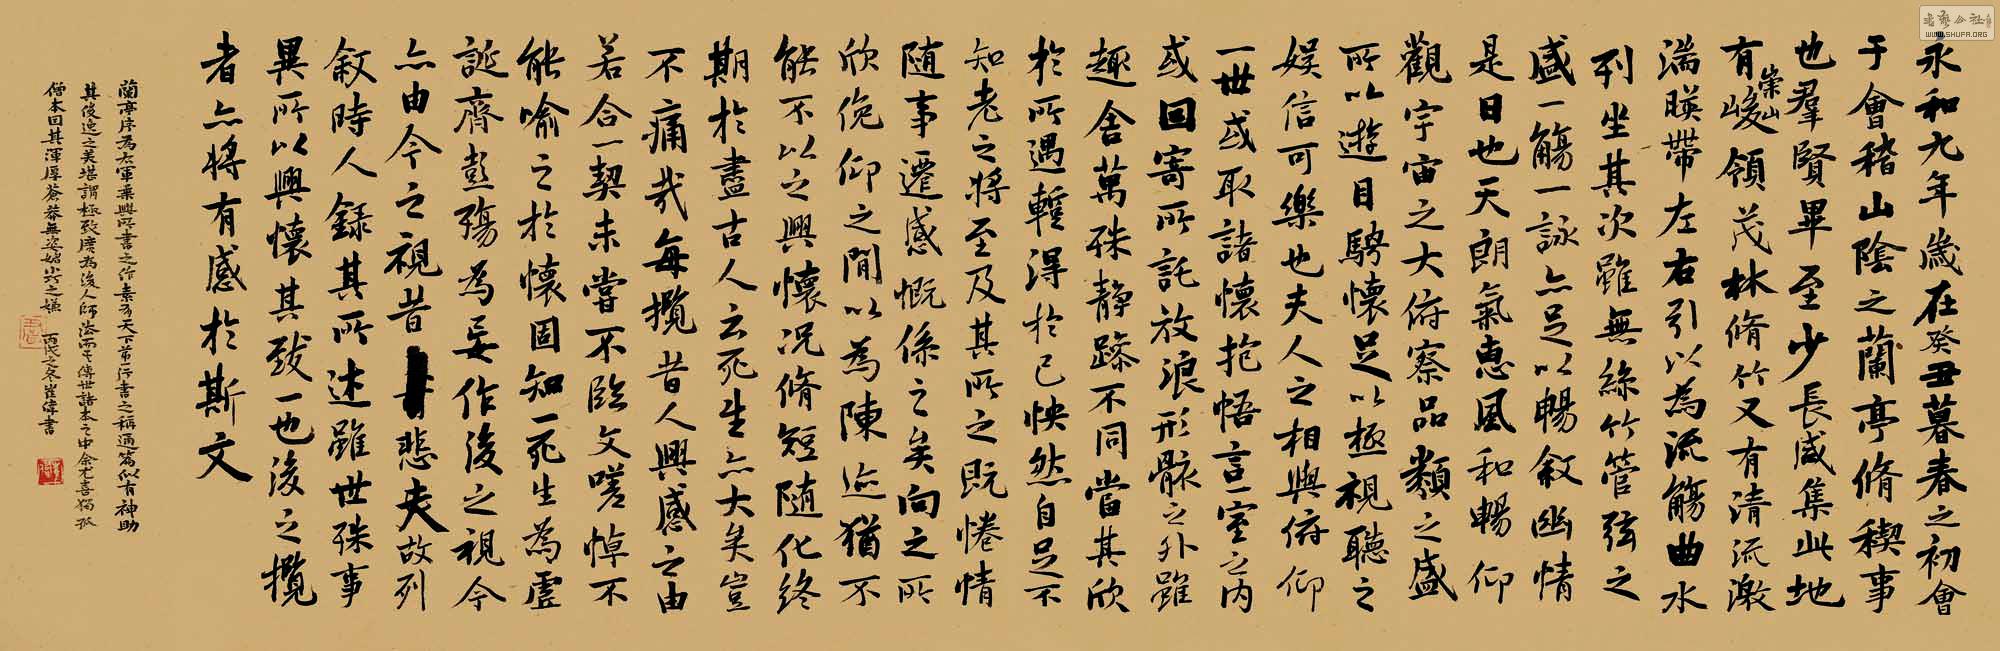 永和九年歲在癸丑暮春之初會
于會稽山陰之蘭亭脩稧事
也羣賢畢至少長咸集此地
有崇山峻領茂林脩竹又有清流激
湍暎帶左右引以為流觴曲水
列坐其次雖無絲竹管弦之
盛一觴一詠亦足以暢敘幽情
是日也天朗氣惠風和暢仰
觀宇宙之大俯察品類之盛
所以遊目騁懷足以極視聽之
娛信可樂也夫人之相與俯仰
一世或取諸懷抱悟言一室之內
或回寄所託放浪形骸之外雖
趣舍萬殊靜躁不同當其欣
於所遇暫得於己怏然自足不
知老之將至及其所之既惓情
隨事遷感慨係之矣向之所
欣俛仰之閒以為陳迹猶不
能不以之興懷況脩短隨化終
期於盡古人云死生亦大矣豈
不痛哉每攬昔人興感之由
若合一契未嘗不臨文嗟悼不
能喻之於懷固知一死生為虛
誕齊彭殤為妄作後之視今
亦由今之視昔悲夫故列
敘時人錄其所述雖世殊事
異所以興懷其致一也後之攬
者亦將有感於斯文
蘭亭序為右軍乘興所書之作素有天下第一行書之稱通篇似有神助
其後逸之美堪謂極致廣為後人師法而其傳世諸本之中余尤喜獨孤
僧本因其渾厚蒼莽無姿媚小巧之嫌 丙戌之冬崔偉書
WWW.SHUFA.ORG